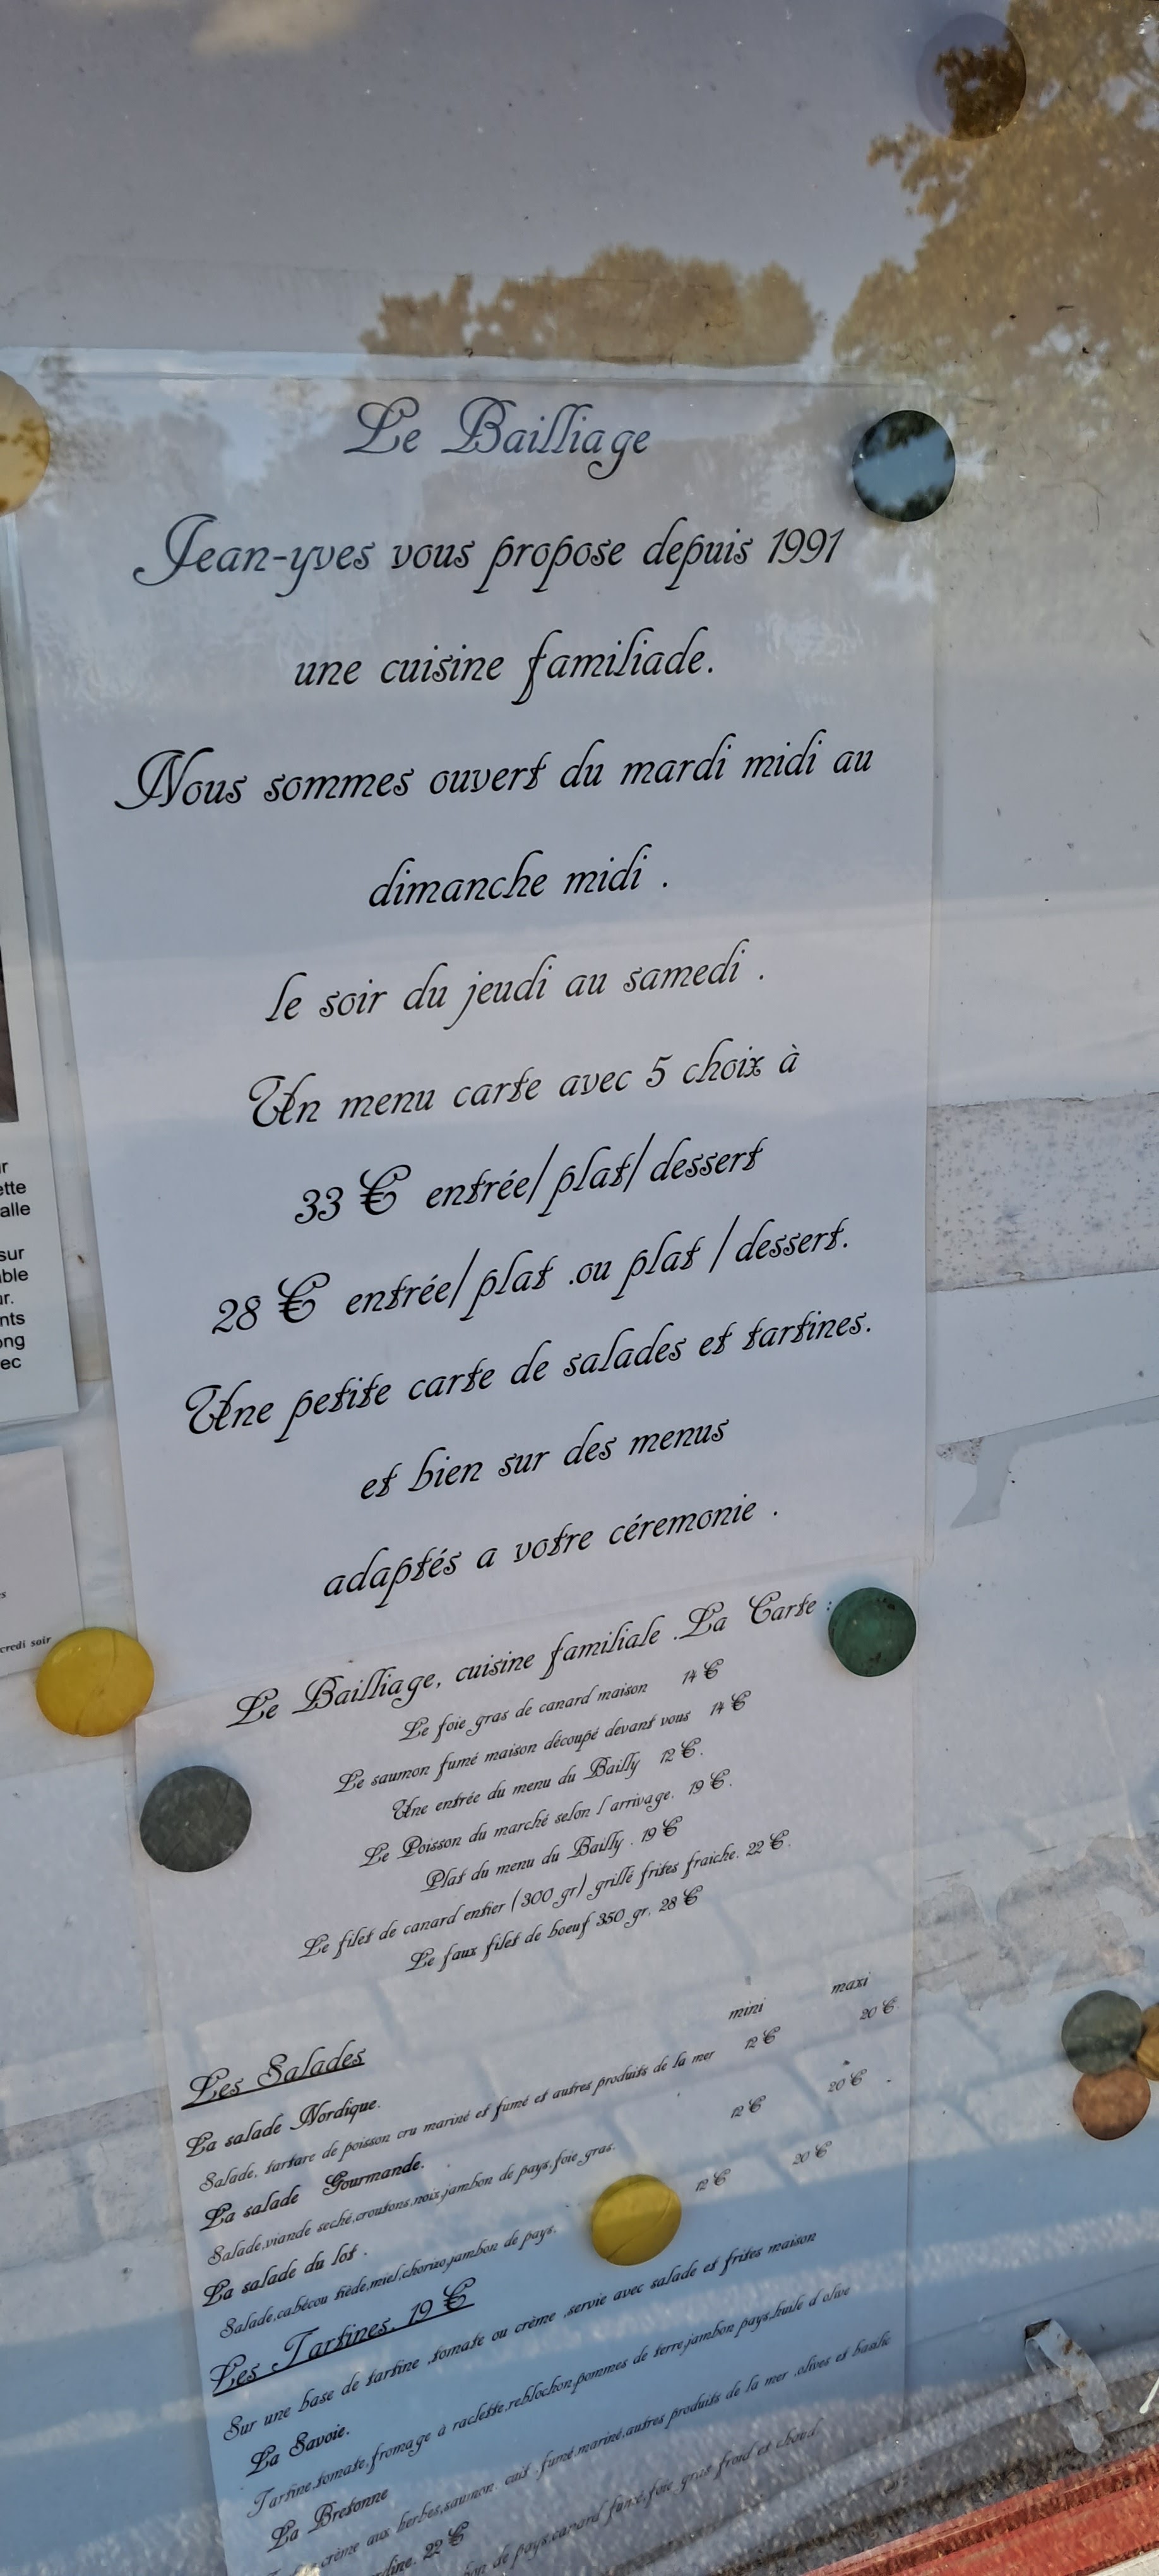 Le Bailliage
Jean-yves vous propose depuis 1991
une cuisine familiade.
Nous sommes ouvert du mardi midi au
dimanche midi .
le soir du jeudi au samedi .
Un menu carte avec 5 choix à
33 € entrée/plat/dessert
28 € entrée/plat .ou plat /dessert.
Une petite carte de salades et tartines.
et bien sur des menus
adaptés a votre céremonie .
Le Bailliage, cuisine familiale .La Carte :
Le foie gras de canard maison 14 €
Le saumon fumé maison découpé devant vous 14 €
Une entrée du menu du Bailly 12 €.
Le Poisson du marché selon l'arrivage. 19 €.
Plat du menu du Bailly . 19 €
Le filet de canard entier (300 gr) grillé frites fraiche. 22 €.
Le faux filet de boeuf 350 gr. 28 €
mini maxi
Les Salades
La salade Nordique. 12 € 20 €
Salade, tartare de poisson cru mariné et fumé et autres produits de la mer
La salade Gourmande. 12 € 20 € .
Salade,viande seché,croutons,noix,jambon de pays,foie gras.
La salade du lot . 12 € 20 €
Salade,cabécou tiède,miel,chorizo,jambon de pays.
Les Tartines. 19 €
Sur une base de tartine ,tomate ou crème ,servie avec salade et frites maison
La Savoie.
Tartine,tomate,fromage à raclette,reblochon,pommes de terre,jambon pays,huile d'olive
La Bretonne
crème aux herbes,saumon cuit ,fumé,mariné,autres produits de la mer ,olives et basilic
22 €
de pays,canard fumé,foie gras froid et chaud
r
ette
alle
sur
ible
ur.
nts
ong
ec
s
credi soir